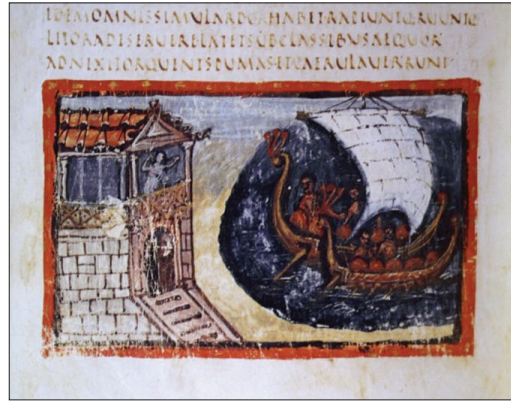 IDEMOMNISSIMULARDORHABETRAPIUNTQRUUNTQ
LITORADESERUERELATETSUBCLASSIBUSAEQUOR
ADNIXITORQUENTSPUMASETCAERULAVERRUNT